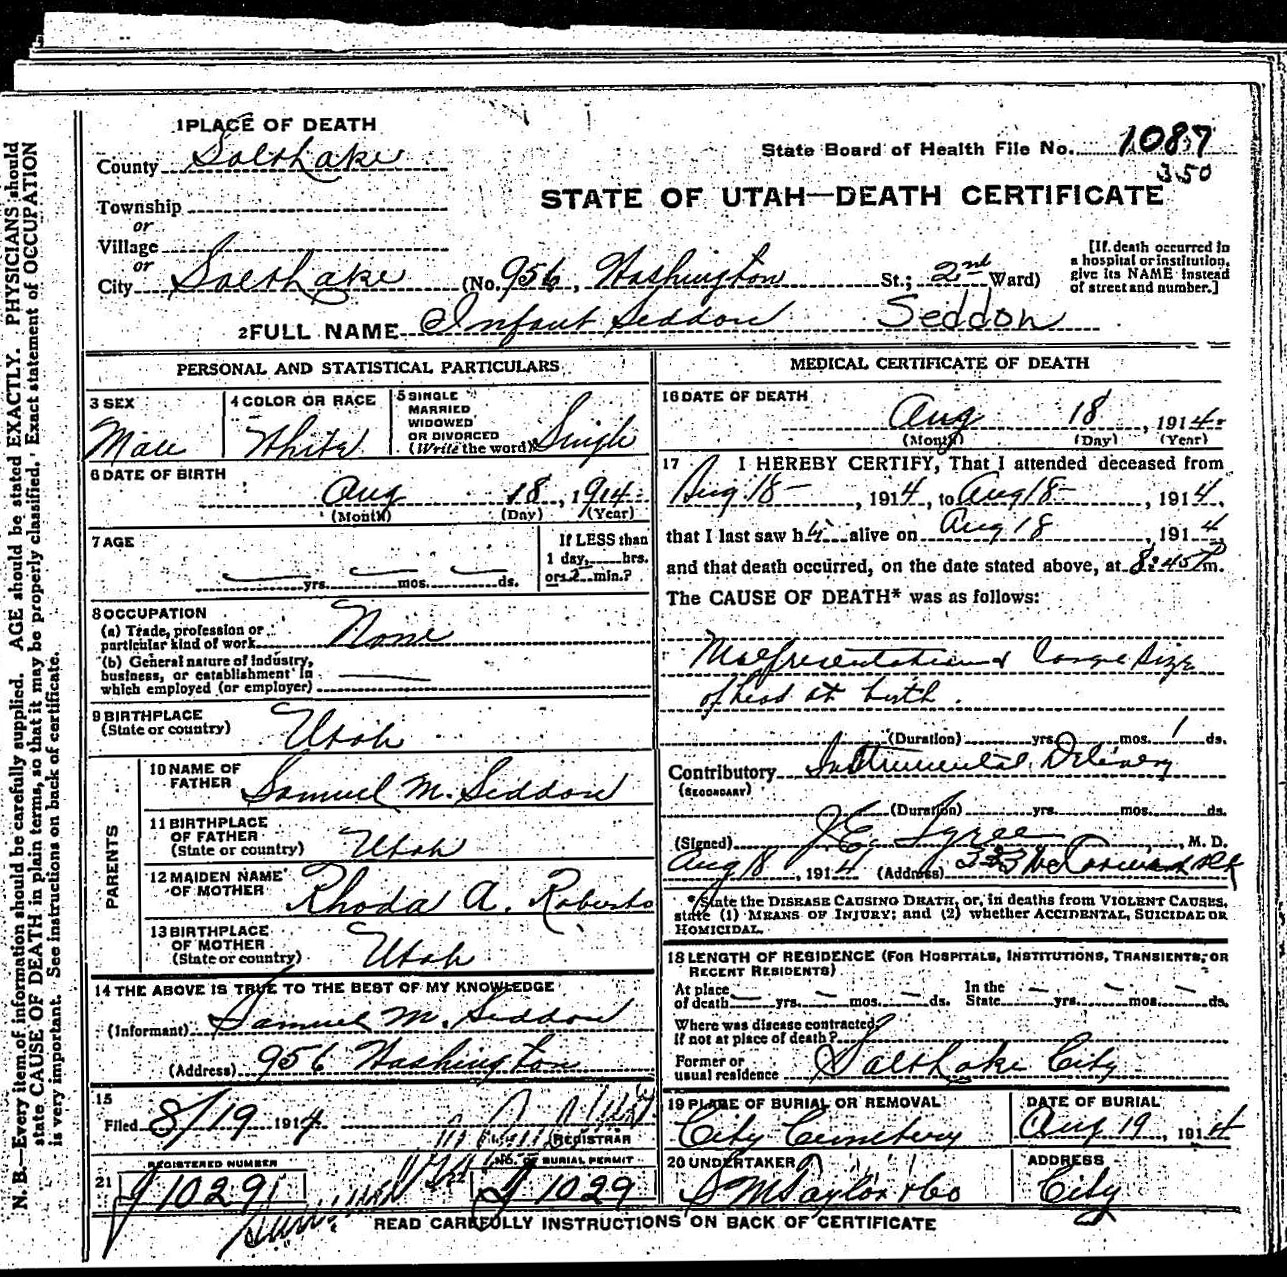 1 PLACE OF DEATH
County Salt Lake
State Board of Health File No. 1087
350
STATE OF UTAH—DEATH CERTIFICATE
Township
or
Village
or
City Salt Lake (No. 956, Washington St.; 2nd Ward)
[If death occurred in
a hospital or institution,
give its NAME instead
of street and number.]
2 FULL NAME Infant Seddon Seddon
PERSONAL AND STATISTICAL PARTICULARS
3 SEX
Male
4 COLOR OR RACE
White
5 SINGLE
MARRIED
WIDOWED
OR DIVORCED
(Write the word) Single
6 DATE OF BIRTH
Aug 18, 1914
(Month) (Day) (Year)
7 AGE
yrs. mos. ds.
If LESS than
1 day, hrs.
or 2 min.?
8 OCCUPATION
(a) Trade, profession or
particular kind of work None
(b) General nature of industry,
business, or establishment in
which employed (or employer)
9 BIRTHPLACE
(State or country) Utah
PARENTS
10 NAME OF
FATHER Samuel M. Seddon
11 BIRTHPLACE
OF FATHER
(State or country) Utah
12 MAIDEN NAME
OF MOTHER Rhoda A. Roberts
13 BIRTHPLACE
OF MOTHER
(State or country) Utah
14 THE ABOVE IS TRUE TO THE BEST OF MY KNOWLEDGE
(Informant) Samuel M. Seddon
(Address) 956 Washington
15
Filed 8/19 1914
REGISTRAR
21
REGISTERED NUMBER
J 1029
NO. OF BURIAL PERMIT
J 1029
MEDICAL CERTIFICATE OF DEATH
16 DATE OF DEATH
Aug 18, 1914
(Month) (Day) (Year)
17 I HEREBY CERTIFY, That I attended deceased from
Aug 18, 1914, to Aug 18, 1914,
that I last saw h alive on Aug 18, 1914,
and that death occurred, on the date stated above, at 8:45 P m.
The CAUSE OF DEATH* was as follows:
Malpresentation & large size
of head at birth.
(Duration) yrs. mos. 1 ds.
Contributory Instrumental Delivery
(SECONDARY)
(Duration) yrs. mos. ds.
(Signed) J.E. Tyree, M. D.
Aug 18, 1914 (Address) 323
*State the DISEASE CAUSING DEATH, or, in deaths from VIOLENT CAUSES,
state (1) MEANS OF INJURY; and (2) whether ACCIDENTAL, SUICIDAL OR
HOMICIDAL.
18 LENGTH OF RESIDENCE (FOR HOSPITALS, INSTITUTIONS, TRANSIENTS, OR
RECENT RESIDENTS)
At place
of death yrs. mos. ds.
In the
State yrs. mos. ds.
Where was disease contracted,
If not at place of death?
Former or
usual residence Salt Lake City
19 PLACE OF BURIAL OR REMOVAL
City Cemetery
DATE OF BURIAL
Aug 19, 1914
20 UNDERTAKER
S M Taylor & Co
ADDRESS
City
READ CAREFULLY INSTRUCTIONS ON BACK OF CERTIFICATE
N. B.—Every item of information should be carefully supplied. AGE should be stated EXACTLY. PHYSICIANS should
state CAUSE OF DEATH in plain terms, so that it may be properly classified. Exact statement of OCCUPATION
is very important. See instructions on back of certificate.